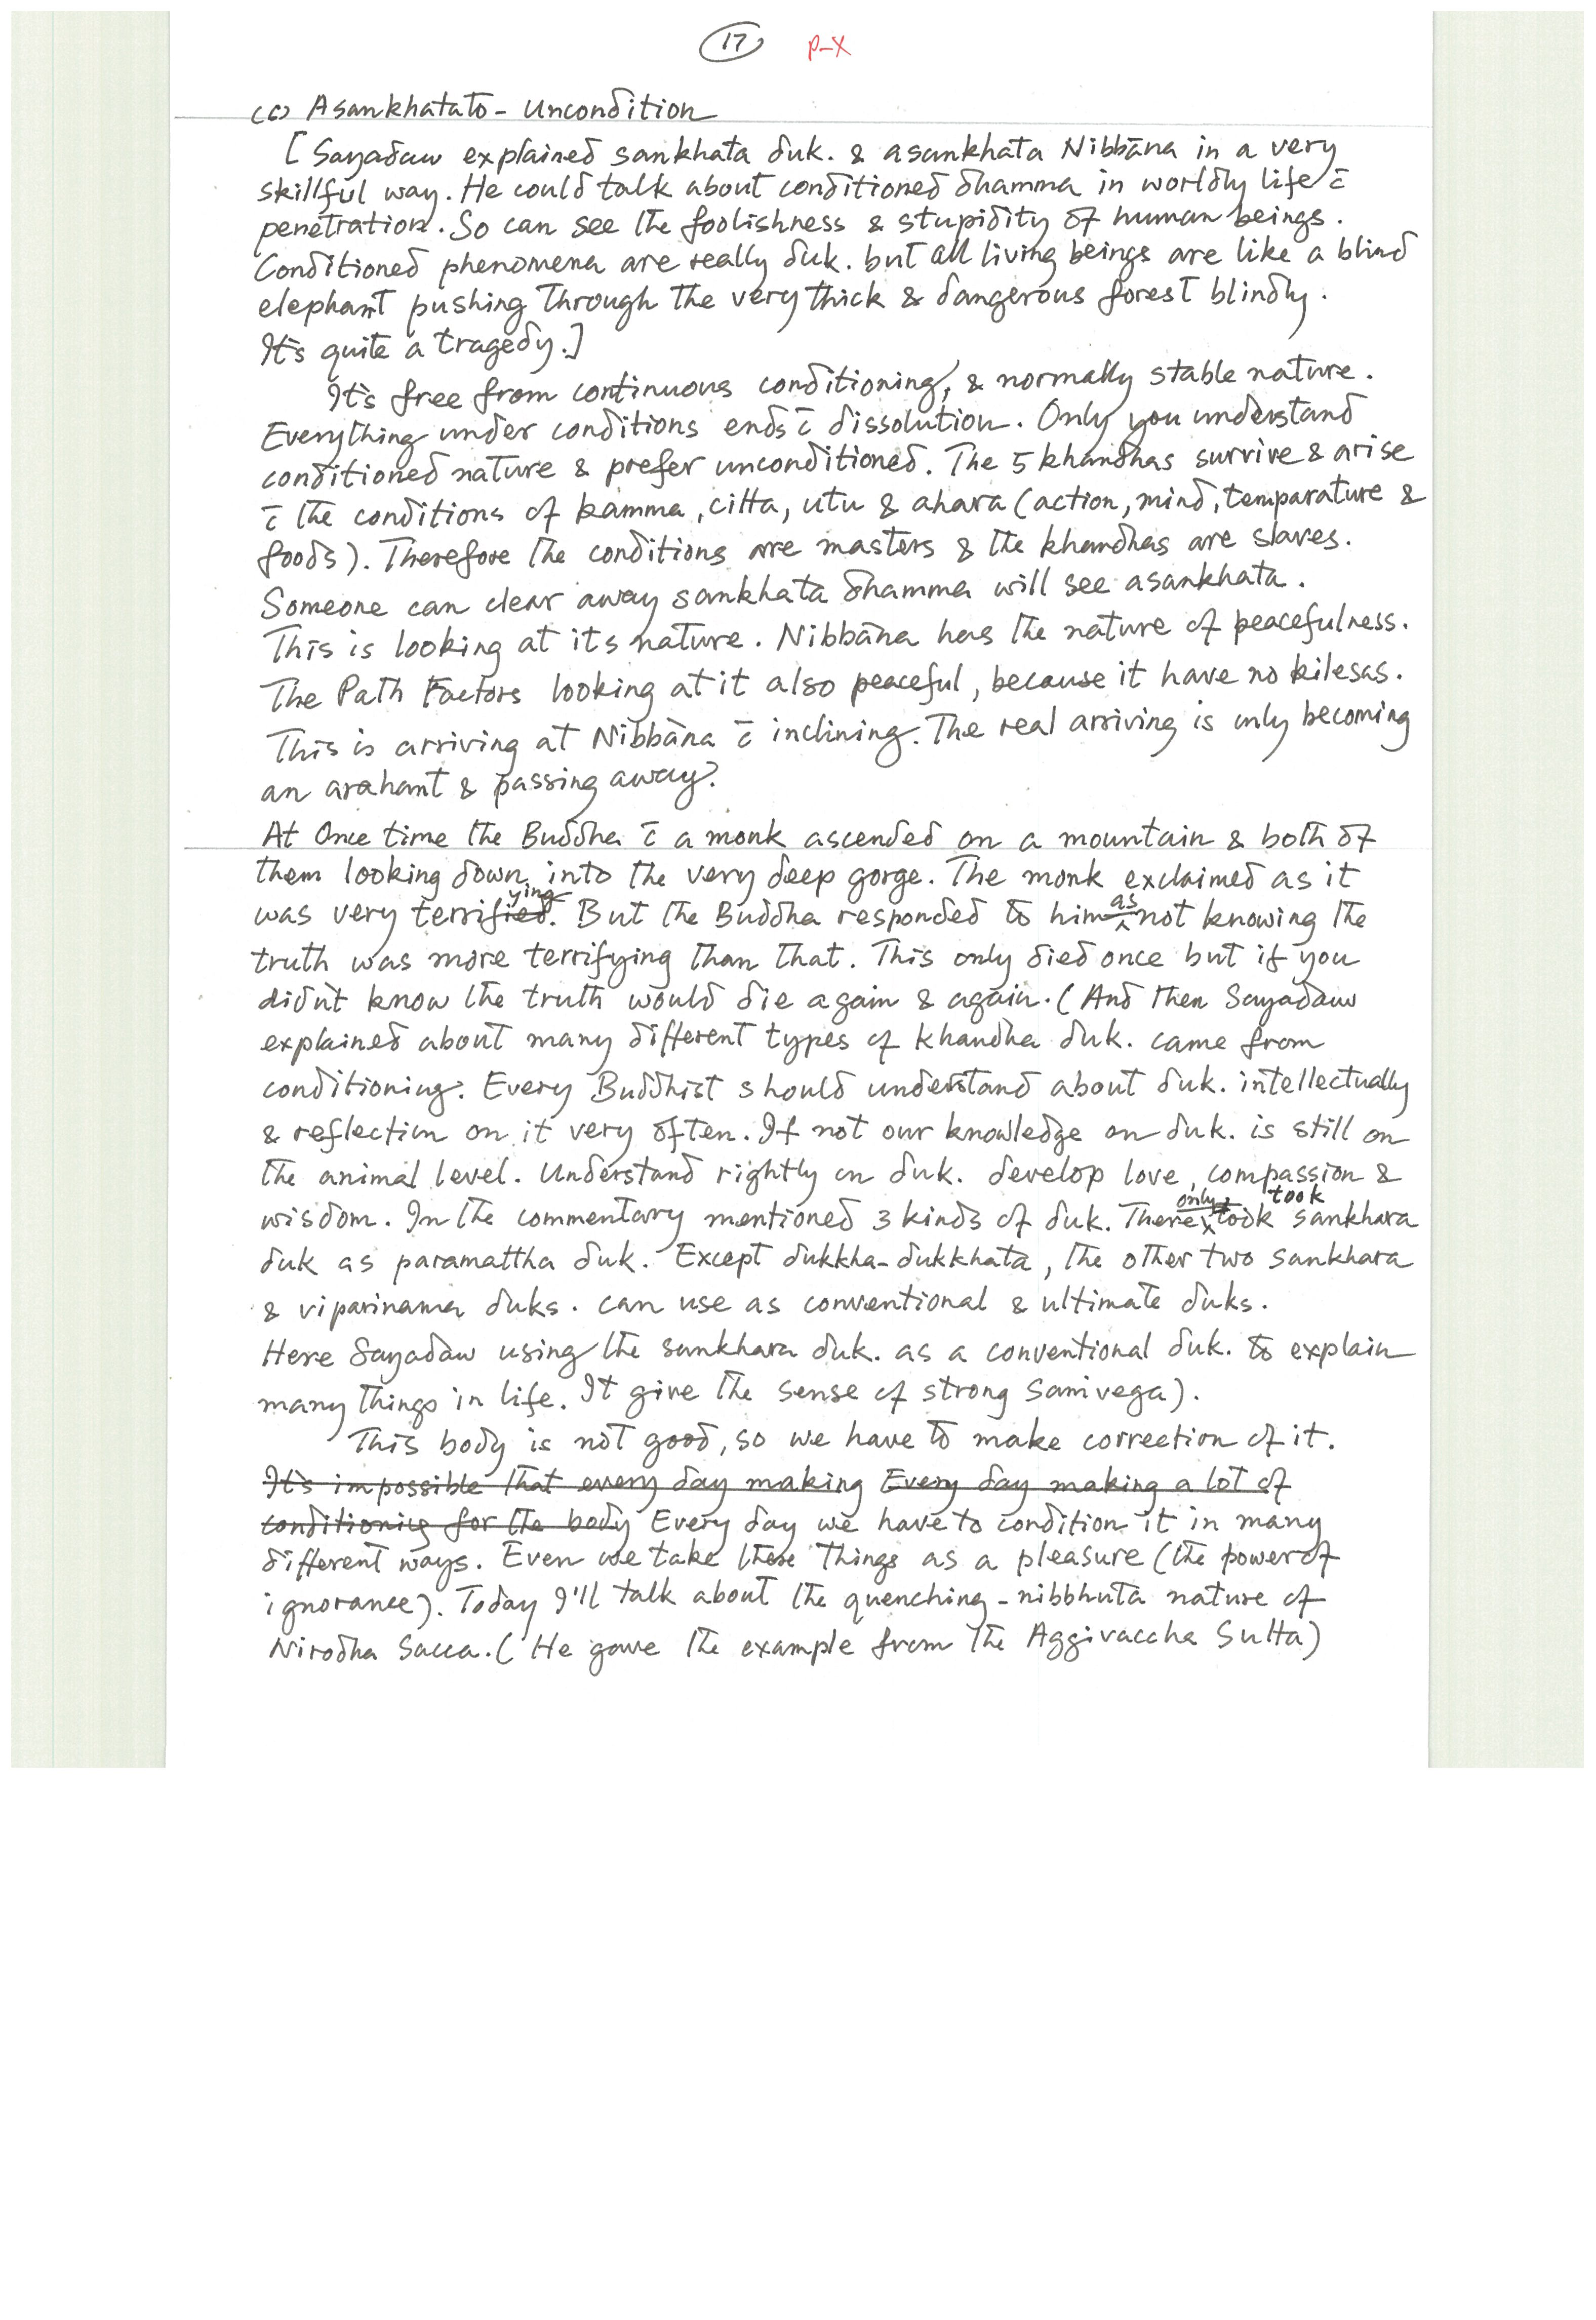 17 P-X
(c) Asankhatato - Uncondition
[Sayadaw explained sankhata duk. & asankhata Nibbāna in a very
skillful way. He could talk about conditioned dhamma in worldly life c̄
penetration. So can see the foolishness & stupidity of human beings.
Conditioned phenomena are really duk. but all living beings are like a blind
elephant pushing through the very thick & dangerous forest blindly.
It's quite a tragedy.]
It's free from continuous conditioning, & normally stable nature.
Everything under conditions ends c̄ dissolution. Only you understand
conditioned nature & prefer unconditioned. The 5 khandhas survive & arise
c̄ the conditions of kamma, citta, utu & ahara (action, mind, temparature &
foods). Therefore the conditions are masters & the khandhas are slaves.
Someone can clear away sankhata dhamma will see asankhata.
This is looking at its nature. Nibbāna has the nature of peacefulness.
The Path Factors looking at it also peaceful, because it have no kilesas.
This is arriving at Nibbāna c̄ inclining. The real arriving is only becoming
an arahant & passing away?
At Once time the Buddha c̄ a monk ascended on a mountain & both of
them looking down into the very deep gorge. The monk exclaimed as it
was very terrifying. But the Buddha responded to him as not knowing the
truth was more terrifying than that. This only died once but if you
didn't know the truth would die again & again. (And then Sayadaw
explained about many different types of khandha duk. came from
conditioning. Every Buddhist should understand about duk. intellectually
& reflection on it very often. If not our knowledge on duk. is still on
the animal level. Understand rightly on duk. develop love, compassion &
wisdom. In the commentary mentioned 3 kinds of duk. There only took sankhara
duk as paramattha duk. Except dukkha-dukkhata, the other two sankhara
& viparinama duks. can use as conventional & ultimate duks.
Here Sayadaw using the sankhara duk. as a conventional duk. to explain
many things in life. It give the sense of strong samvega).
This body is not good, so we have to make correction of it.
It's impossible that every day making Every day making a lot of
conditioning for the body Every day we have to condition it in many
different ways. Even we take these things as a pleasure (the power of
ignorance). Today I'll talk about the quenching - nibbhuta nature of
Nirodha Sacca. (He gave the example from the Aggivaccha Sutta)